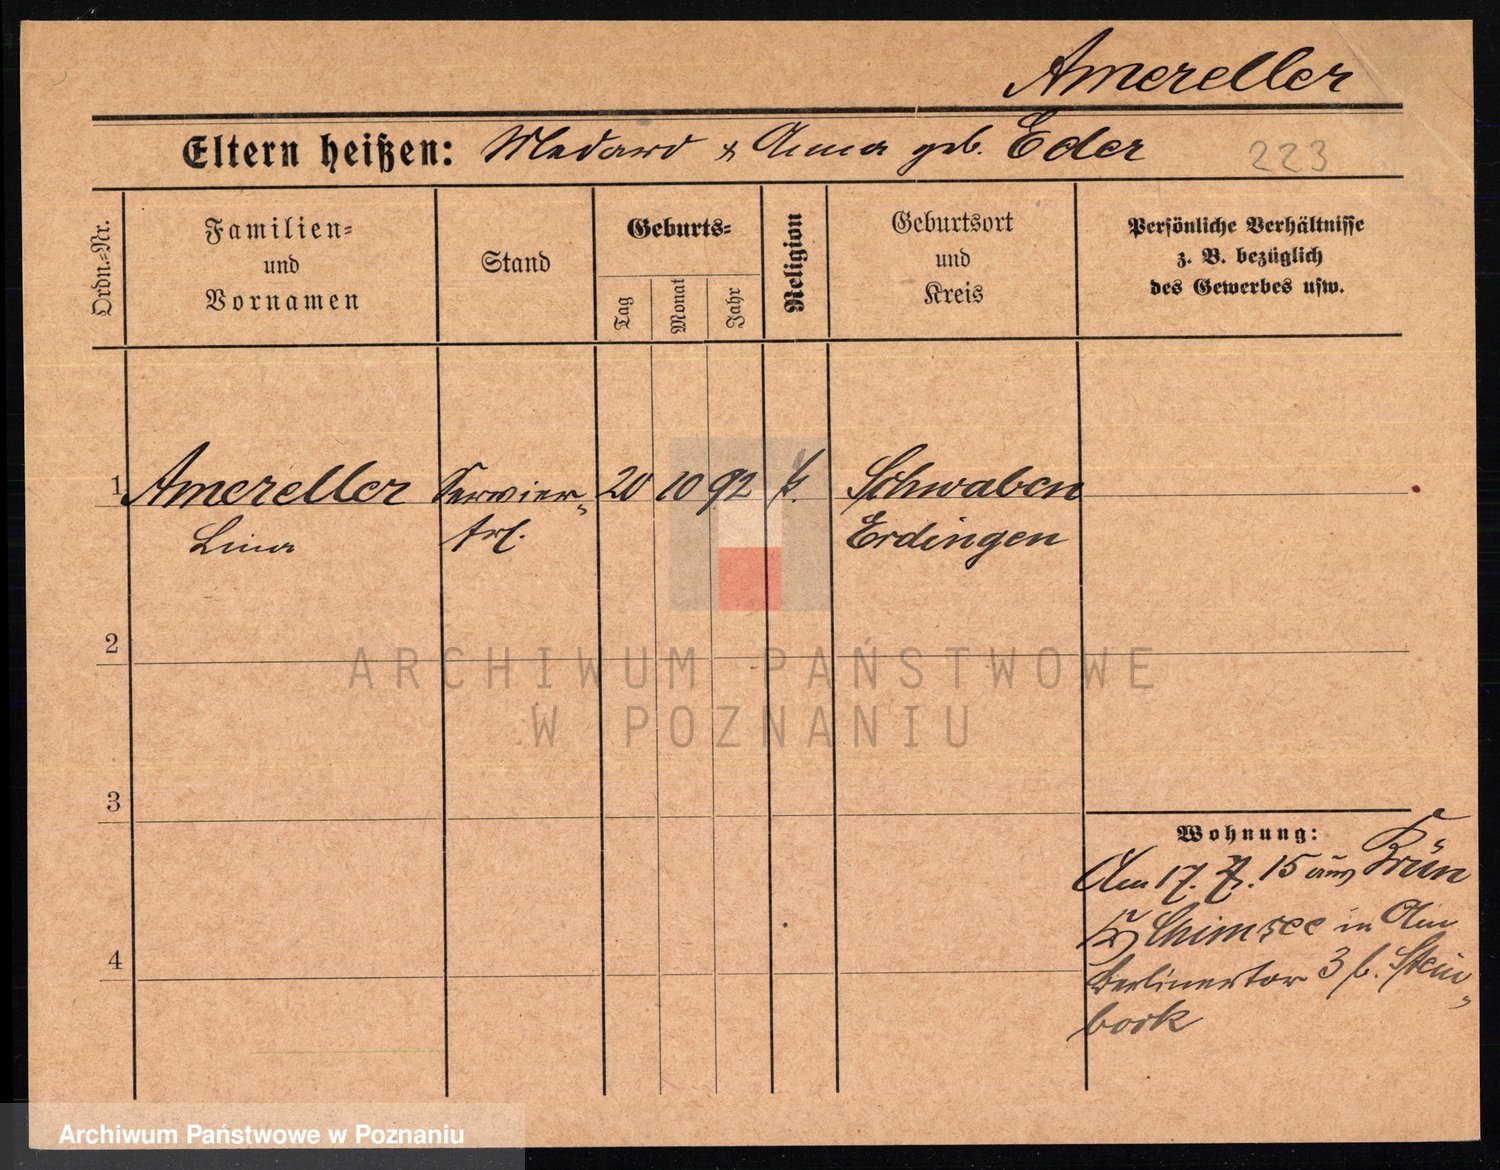 Amereller
Eltern heißen: Medard & Anna geb. Eder
223
Ordn.-Nr.
Familien-
und
Vornamen
Stand
Geburts-
Tag
Monat
Jahr
Religion
Geburtsort
und
Kreis
Persönliche Verhältnisse
z. B. bezüglich
des Gewerbes usw.
1 Amereller Servier- 20 10 92 k. Schwaben
Lina frl. Erdingen
2
ARCHIWUM PAŃSTWOWE
W POZNANIU
3
Wohnung:
Am 17. 7. 15 aus
Chimsee in Am
Berlinertor 3 b. Stein-
bock
4
Archiwum Państwowe w Poznaniu